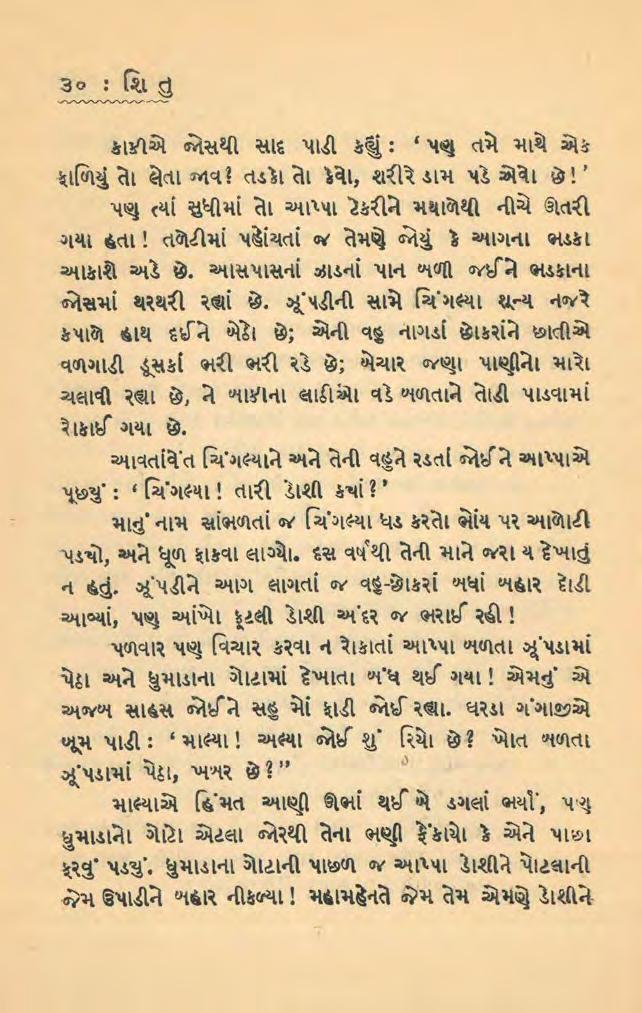 ૩૦ : શિ તુ
કાકીએ જોસથી સાદ પાડી કહ્યું : ‘ પણ તમે માથે એક
ફાળિયું તો લેતા જાવ? તડકો તો કેવો, શરીરે ડામ પડે એવો છે! ’
પણ ત્યાં સુધીમાં તો આપ્પા ટેકરીને મથાળેથી નીચે ઊતરી
ગયા હતા! તળેટીમાં પહોંચતાં જ તેમણે જોયું કે આગના ભડકા
આકાશે અડે છે. આસપાસનાં ઝાડનાં પાન બળી જઈને ભડકાના
જોસમાં થરથરી રહ્યાં છે. ઝૂંપડીની સામે ચિંગલ્યા શૂન્ય નજરે
કપાળે હાથ દઈને બેઠો છે; એની વહુ નાગડાં છોકરાંને છાતીએ
વળગાડી ડૂસકાં ભરી ભરી રડે છે; બેચાર જણા પાણીનો મારો
ચલાવી રહ્યા છે, ને બાકીના લાઠીઓ વડે બળતાને તોડી પાડવામાં
રોકાઈ ગયા છે.
આવતાંવેંત ચિંગલ્યાને અને તેની વહુને રડતાં જોઈને આપ્પાએ
પૂછ્યું : ‘ ચિંગલ્યા! તારી ડોશી ક્યાં? ’
માનું નામ સાંભળતાં જ ચિંગલ્યા ધડ કરતો ભોંય પર આળોટી
પડ્યો, અને ધૂળ ફાકવા લાગ્યો. દસ વર્ષથી તેની માને જરા ય દેખાતું
ન હતું. ઝૂંપડીને આગ લાગતાં જ વહુ-છોકરાં બધાં બહાર દોડી
આવ્યાં, પણ આંખો ફૂટલી ડોશી અંદર જ ભરાઈ રહી!
પળવાર પણ વિચાર કરવા ન રોકાતાં આપ્પા બળતા ઝૂંપડામાં
પેઠા અને ધુમાડાના ગોટામાં દેખાતા બંધ થઈ ગયા! એમનું એ
અજબ સાહસ જોઈને સહુ મોં ફાડી જોઈ રહ્યા. ઘરડા ગંગાજીએ
બૂમ પાડી : ‘ માલ્યા! અલ્યા જોઈ શું રિયો છે? ખોત બળતા
ઝૂંપડામાં પેઠા, ખબર છે?”
માલ્યાએ હિંમત આણી ઊભાં થઈ બે ડગલાં ભર્યાં, પણ
ધુમાડાનો ગોટો એટલા જોરથી તેના ભણી ફેંકાયો કે એને પાછા
ફરવું પડ્યું. ધુમાડાના ગોટાની પાછળ જ આપ્પા ડોશીને પોટલાની
જેમ ઉપાડીને બહાર નીકળ્યા! મહામહેનતે જેમ તેમ એમણે ડોશીને